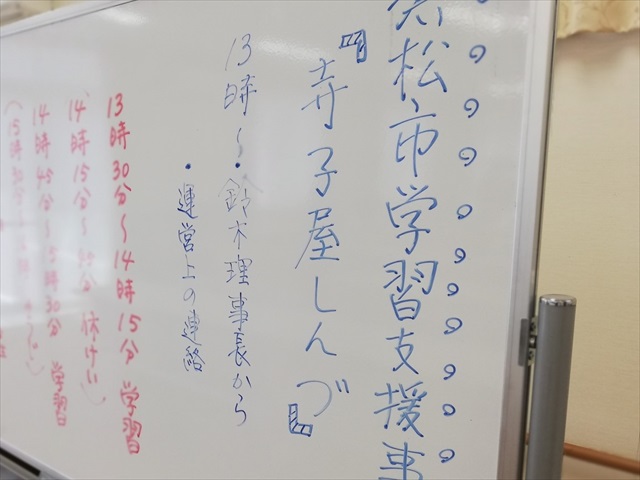 松市学習支援事
『寺子屋しんづ』
13時〜・鈴木理事長から
・運営上の連絡
13時30分〜14時15分 学習
(14時15分〜 分 休けい)
14時45分〜15時30分 学習
(15時30分〜